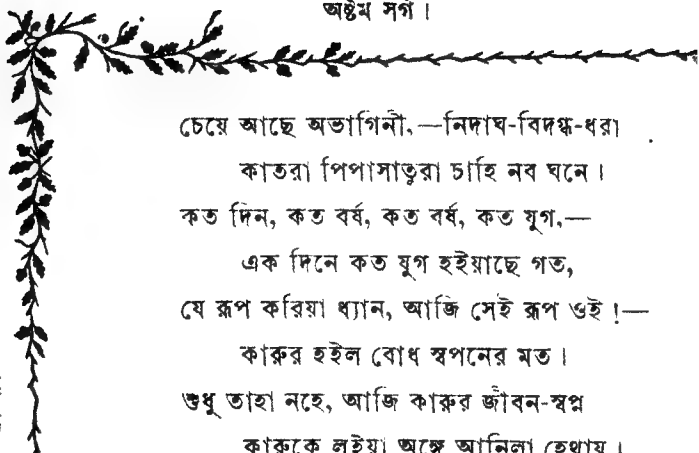 অষ্টম সর্গ ।
চেয়ে আছে অভাগিনী,—নিদাঘ-বিদগ্ধ-ধরা
কাতরা পিপাসাতুরা চাহি নব ঘনে ।
কত দিন, কত বর্ষ, কত বর্ষ, কত যুগ,—
এক দিনে কত যুগ হইয়াছে গত,
যে রূপ করিয়া ধ্যান, আজি সেই রূপ ওই !—
কারুর হইল বোধ স্বপনের মত ।
শুধু তাহা নহে, আজি কারুর জীবন-স্বপ্ন
কারুকে লইয়া অঙ্গে আনিলা হেথায় ।